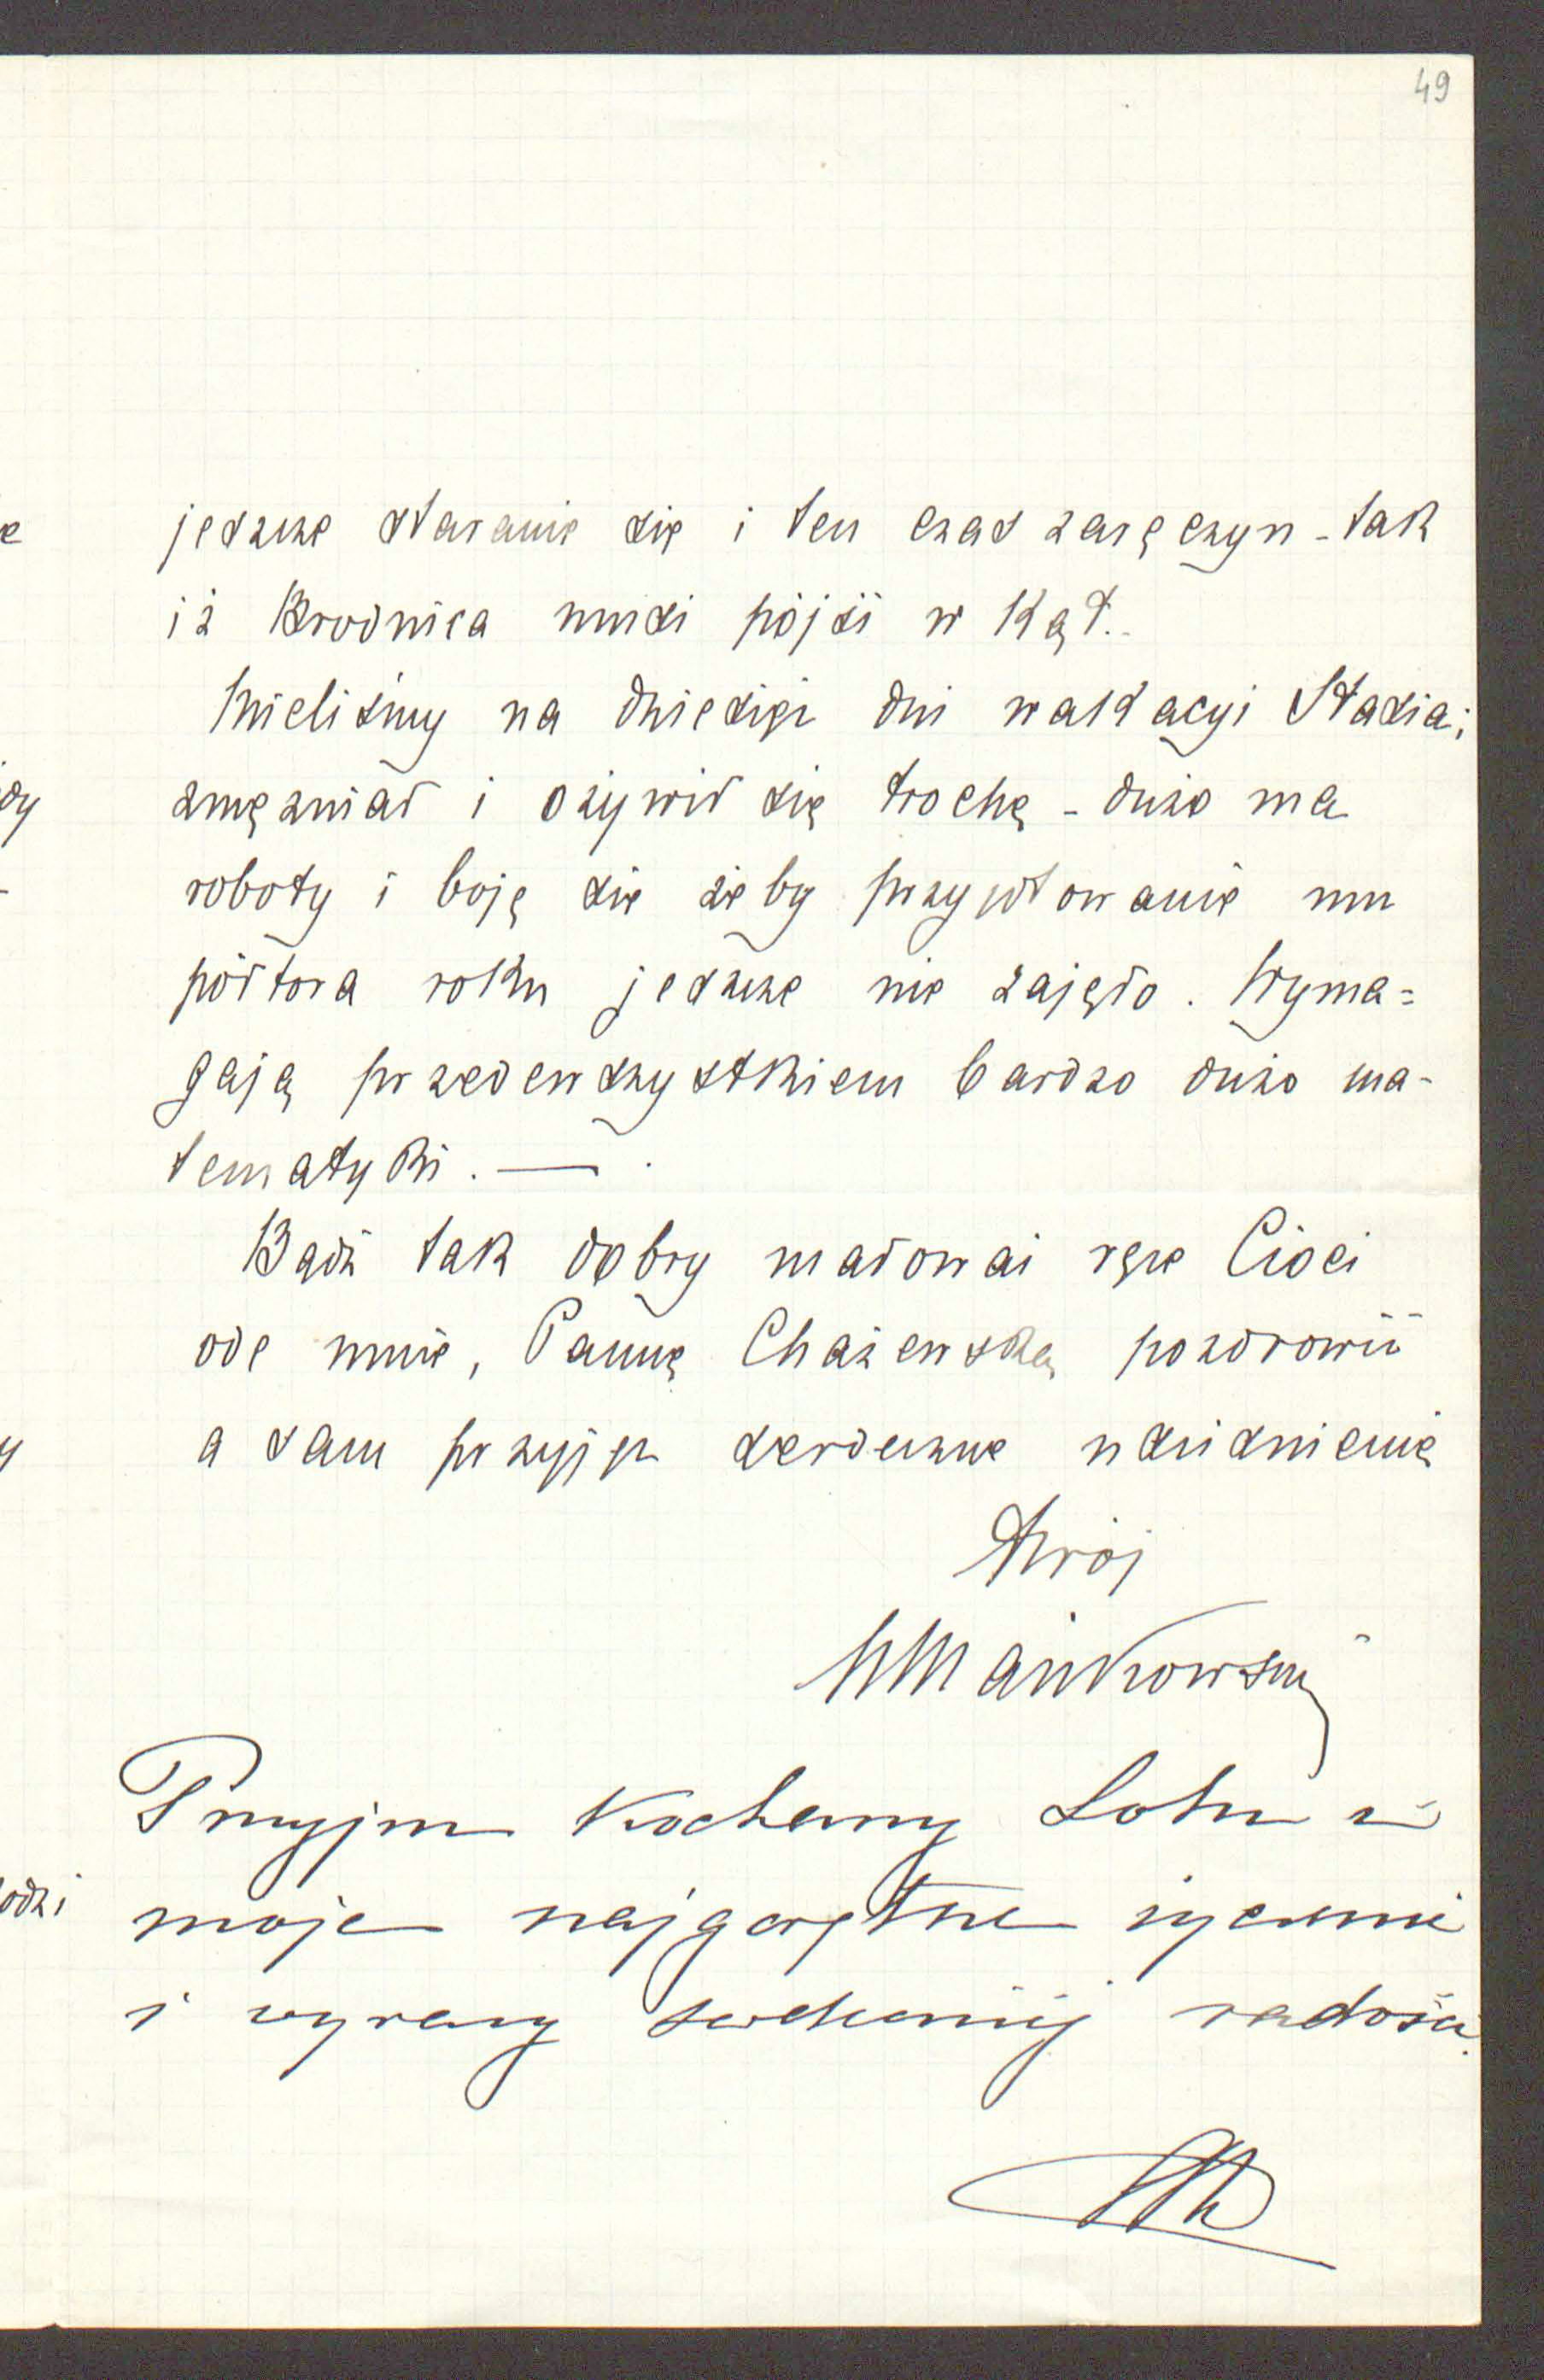 49
jeszcze staranie się i ten czas zaręczyn - tak
iż Brodnica musi pójść w kąt..
Mieliśmy na dziesięć dni wakacyi Stasia;
zmężniał i ożywił się trochę - dużo ma
roboty i boję się żeby przygotowanie mu
półtora roku jeszcze nie zajęło. Wyma=
gają przedewszystkiem bardzo dużo ma-
tematyki. — .
Bądź tak dobry ucałować ręce Cioci
ode mnie, Pannę Chażewską pozdrowić
a sam przyjąć serdeczne uściśnienie
Twój
WMańkowski
Przyjm Kochany Lolu i
moje najgorętsze życzenie
i wyrazy serdecznej radości.